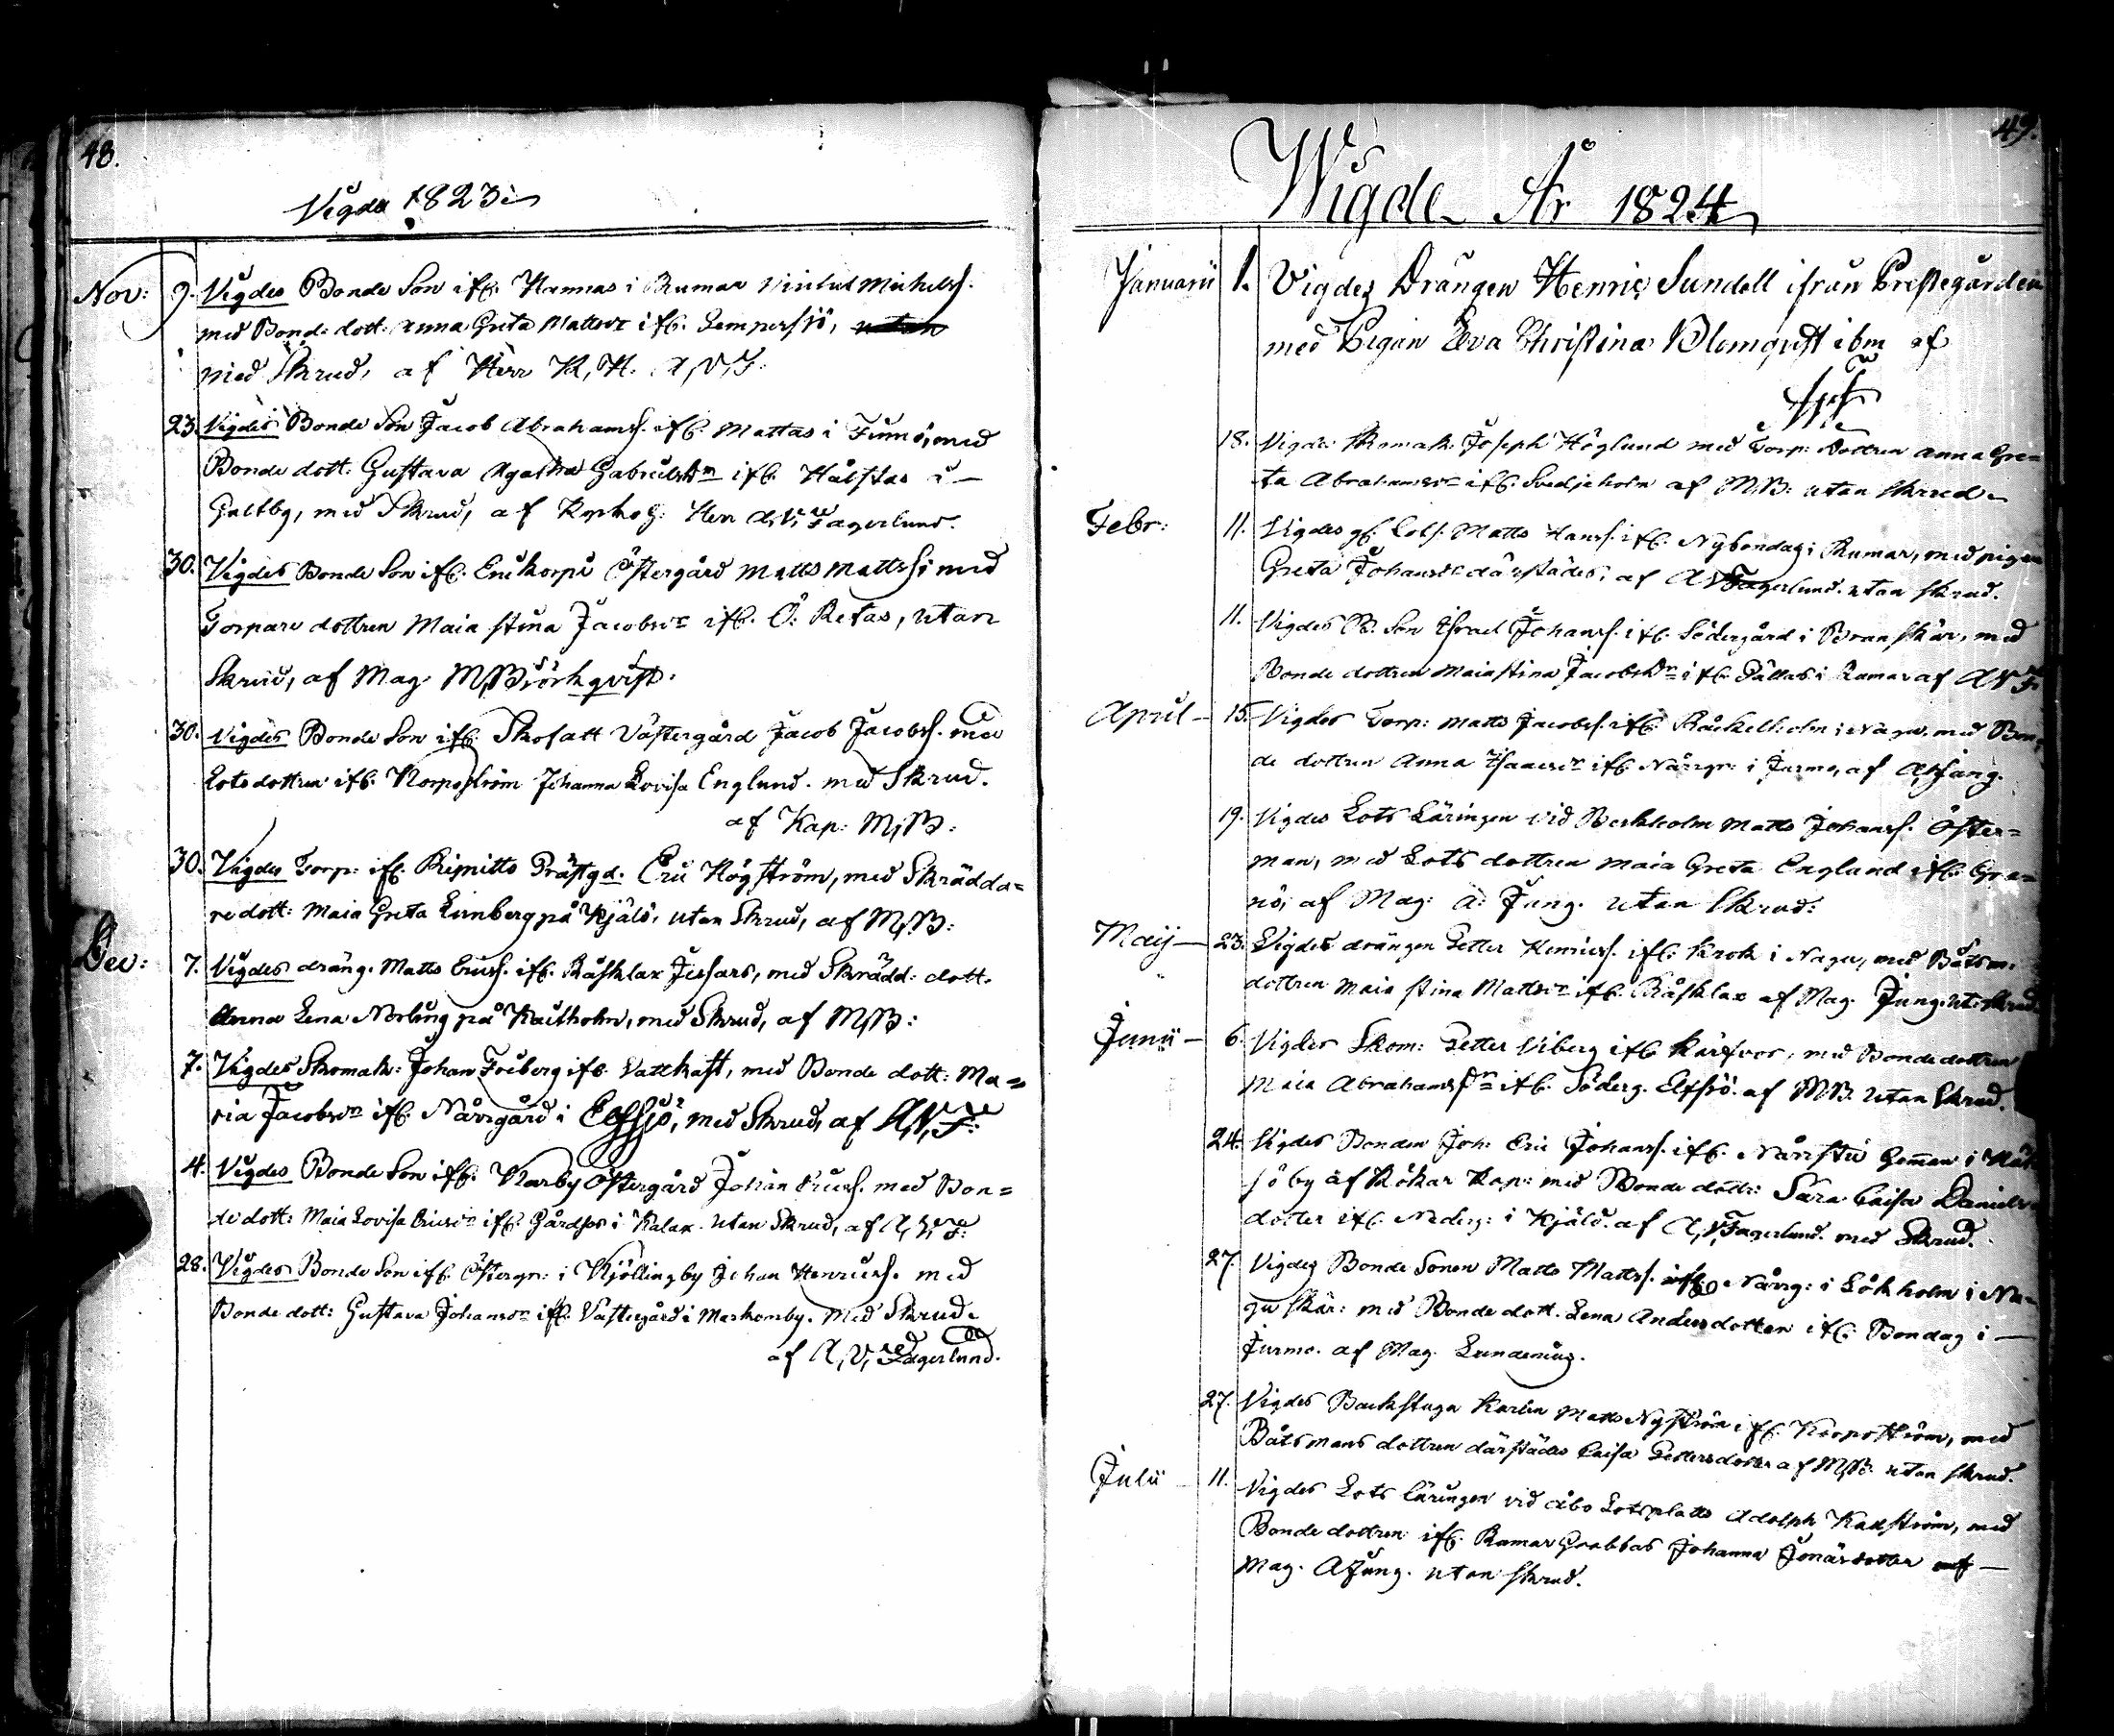 48.
Vigde 1823
Nov: 9. Vigdes Bonde Son ifr. Hannas i Rumar Michelss.
med Bonde dott: Anna Greta Mattsdr ifr. Lempersjö, utan
med Skrud, af Herr K, H. A, V, F.
23. Vigdes Bonde Son Jacob Abrahamss. ifr. Mattas i Finnö, med
Bonde dott. Gustava Agatha Gabrielsdr ifr. Hålstas i
Galtby, med Skrud, af Kyrkoh: Herr A, V, Fagerlund.
30. Vigdes Bonde Son ifr. Erikorpi Östergård Matts Mattss: med
Torpare dottren Maia Stina Jacobsdr ifr. Ö: Retas, utan
Skrud, af Mag. M, Björkqvist.
30. Vigdes Bonde Son ifr. Skofatt Västergård Jacob Jacobss. med
Lots dottren ifr. Korpoström Johanna Lovisa Englund. med Skrud.
af Kap: M, B:
30. Vigdes Torp: ifr. Rispitto Prästgd. Eric Högström, med Skrädda=
re dott: Maia Greta Limberg på Kjälö, utan Skrud, af M, B:
Dec: 7. Vigdes dräng. Matts Ericss. ifr. Råsklax Jessars, med Skrädd: dott.
Anna Lena Norling på Kaitholm, med Skrud, af M, B:
7. Vigdes Skomak: Johan Friberg ifr. Vattkast, med Bonde dott: Ma=
ria Jacobsdr ifr. Norrgård i Elfsjö, med Skrud, af A, V, F:
4. Vigdes Bonde Son ifr. Karby Östergård Johan Ericss. med Bon=
de dott: Maia Lovisa Ericsdr ifr. Gårdsos i Kalax. utan Skrud, af A, V, F:
28. Vigdes Bonde Son ifr. Östergr: i Kjöllingby Johan Henricss. med
Bonde dott: Gustava Johansdr ifr. Västergård i Markomby. Med Skrud.
af A, V, Fagerlund.
49.
Wigde År 1824
Januarii 1. Vigdes Drängen Henric Sundell ifrån Prestegården
med Pigan Eva Christina Blomqvist ibm af
18. Vigde: Skomak: Joseph Höglund med Torp: Dottren Anna Gre=
ta Abrahamsdr ifr. Svedjeholm af M, B: utan Skrud.
Febr: 11. Vigdes gf. Matts Hanss. ifr. Nybondas i Rumar, med pigan
Greta Johansdr därstädes, af A V Fagerlund. utan Skrud.
11. Vigdes B: Son Israel Johanss. ifr. Södergård i Brunskär, med
Bonde dottren Maia Stina Jacobsdr ifr. Pällas i Rumar af A V F.
April — 15. Vigdes Torp: Matts Jacobss. ifr. Båckelholm i Nagu. med Bon=
de dottren Anna Isacsdr ifr. Norrgr: i Jurmo, af A Jung.
19. Vigdes Lots Läringen vid Berkholm Matts Johanss. Öster=
man, med Lots dottren Maia Greta Englund ifr. Gra=
nö, af Mag: A: Jung. utan Skrud:
Maij — 23. Vigdes drängen Petter Henricss. ifr. Krok i Nagu, med Båtsm:
dottren Maia Stina Mattsdr ifr. Råsklax af Mag. Jung. ut: Skrud.
Junii — 6. Vigdes Skom: Petter Viberg ifr. Kärfvor, med Bonde dottren
Maia Abrahamsdr ifr. Söderg. Elfsjö. af M B. utan Skrud.
24. Vigdes Bonden Joh: Eric Johanss. ifr. Norrstu Gemman i
sö by af Kökar Kap: med Bonde dottr: Sara Caisa Daniels
dotter ifr. Nederg: i Kjälö. af A, V, Fagerlund. med Skrud.
27. Vigdes Bonde Sonen Matts Mattss. ifr. Norrg: i Lökholm i Na=
gu Skär: med Bonde dott. Lena Andersdotter ifr. Bondas i —
Jurmo. af Mag. Lundenius.
27. Vigdes Backstugu Karlen Matts Nyström ifr. Korpoström, med
Båtsmans dottren därstädes Caisa Pettersdotter af M, B: utan Skrud.
Julii — 11. Vigdes Lots Läringen vid Åbo Lotsplatts Adolph Karlström, med
Bonde dottren ifr. Rumar Grabbas Johanna Jonasdotter af —
Mag. A Jung. utan Skrud.